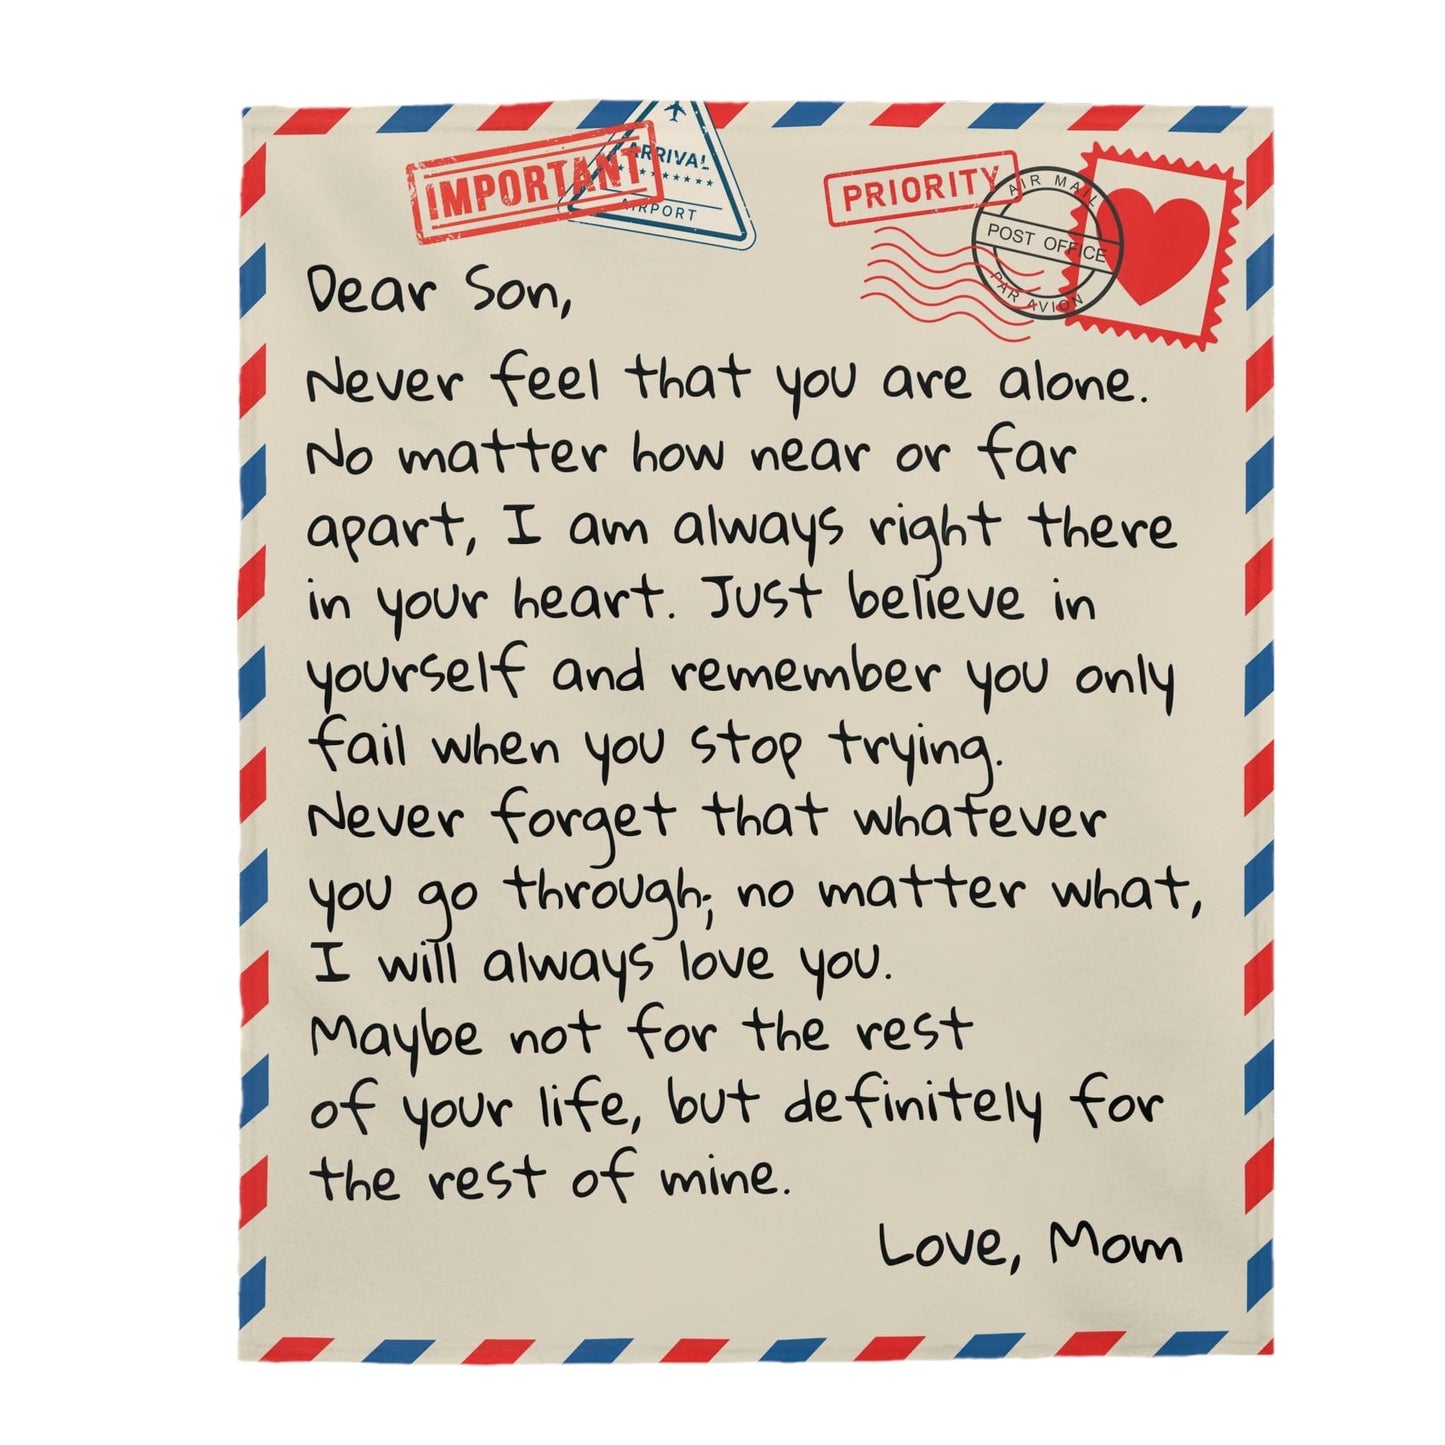 IMPORTANT
ARRIVAL
AIRPORT
PRIORITY
AIR MAIL
POST OFFICE
PAR AVION
Dear Son,
Never feel that you are alone.
No matter how near or far
apart, I am always right there
in your heart. Just believe in
yourself and remember you only
fail when you stop trying.
Never forget that whatever
you go through; no matter what,
I will always love you.
Maybe not for the rest
of your life, but definitely for
the rest of mine.
Love, Mom